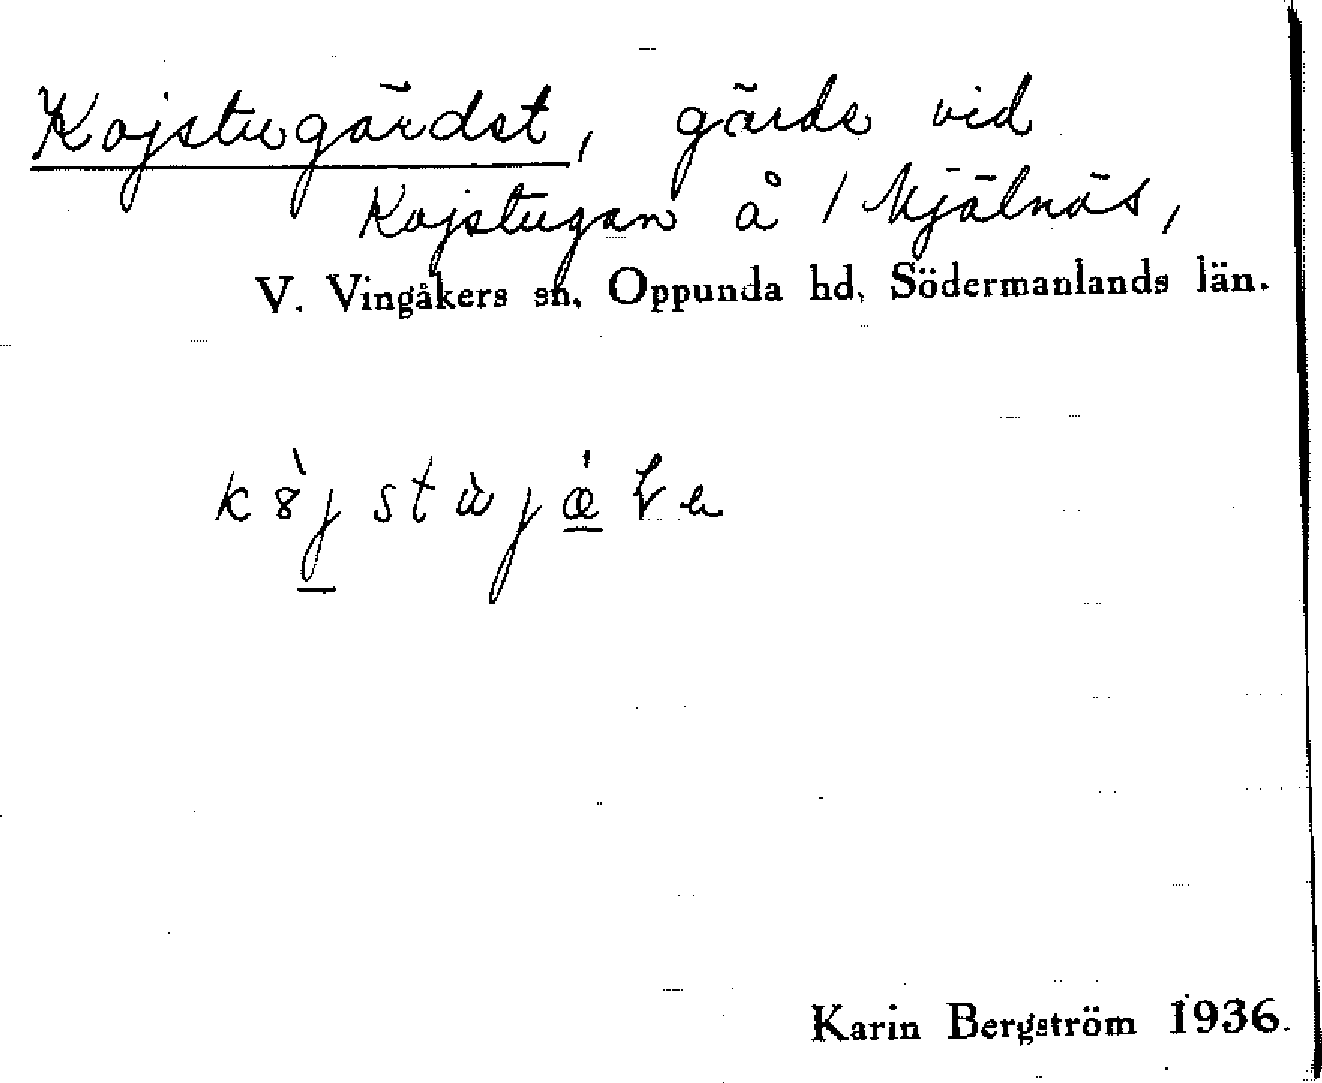 Kojstugärdet, gärde vid
Kojstugan å 1 Mjälnäs,
V. Vingåkers sn, Oppunda hd, Södermanlands län.
Karin Bergström 1936.